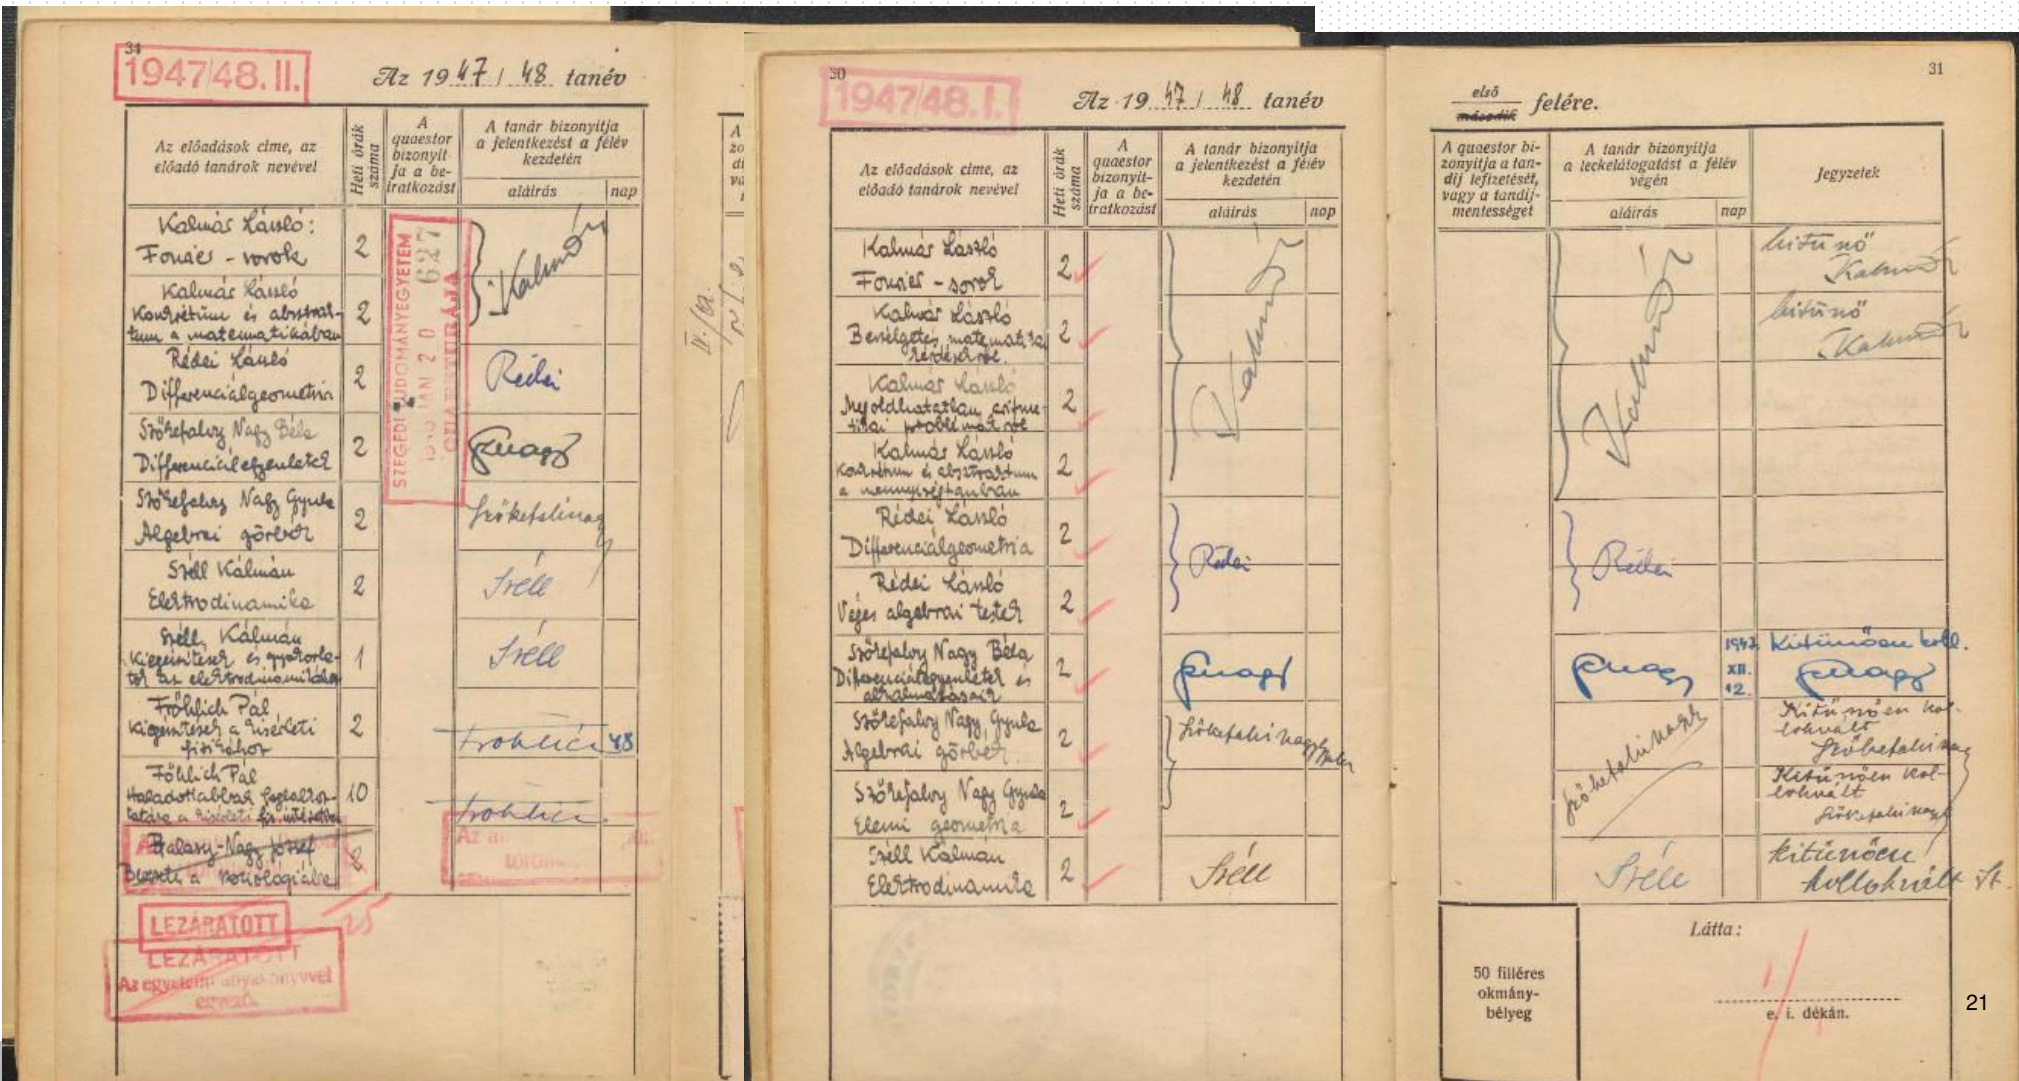 34
1947/48. II.
Az 1947 / 48 tanév
Az előadások címe, az
előadó tanárok nevével
Heti órák
száma
A
quaestor
bizonyít-
ja a be-
iratkozást
A tanár bizonyítja
a jelentkezést a félév
kezdetén
aláírás
nap
Kalmár László:
Fourier - sorok
2
Kalmár
Kalmár László
Konkrétum és absztrak-
tum a matematikában
2
Rédei László
Differenciálgeometria
2
Rédei
Szőkefalvy Nagy Béla
Differenciálegyenletek
2
Sznagy
Szőkefalvy Nagy Gyula
Algebrai görbék
2
Szőkefalvinagy
Széll Kálmán
Elektrodinamika
2
Széll
Széll Kálmán
Kiegészítések és gyakorla-
tok az elektrodinamikához
1
Széll
Fröhlich Pál
Kiegészítések a kisérleti
fizikához
2
Fröhlich
48
Föhlich Pál
Haladottabbak foglalkoz-
tatása a kisérleti
10
Fröhlich
Balasy-Nagy József
a szociológiába
2
SZEGEDI TUDOMÁNYEGYETEM
JAN 20
627
QUAESTURÁJA
LEZÁRATOTT
25
LEZÁRATOTT
Az egyetemi anyakönyvvel
egyező.
30
1947/48. I.
Az 1947 / 48 tanév
Az előadások címe, az
előadó tanárok nevével
Heti órák
száma
A
quaestor
bizonyít-
ja a be-
iratkozást
A tanár bizonyítja
a jelentkezést a félév
kezdetén
aláírás
nap
Kalmár László
Fourier - sorok
2
Kalmár
Kalmár László
Beszélgetés matematikai
kérdésekről.
2
Kalmár László
Megoldhatatlan aritme-
tikai problémákról
2
Kalmár László
Konkrétum és absztraktum
a mennyiségtanban
2
Rédei László
Differenciálgeometria
2
Rédei
Rédei László
Véges algebrai testek
2
Szőkefalvy Nagy Béla
Differenciálegyenletek és
alkalmazásaik
2
Sznagy
Szőkefalvy Nagy Gyula
Algebrai görbék.
2
Szőkefalvi Nagy Gyula
Szőkefalvy Nagy Gyula
Elemi geometria
2
Széll Kálmán
Elektrodinamika
2
Széll
31
első
második
felére.
A quaestor bi-
zonyítja a tan-
díj lefizetését,
vagy a tandíj-
mentességet
A tanár bizonyítja
a leckelátogatást a félév
végén
aláírás
nap
Jegyzetek
Kalmár
kitűnő
Kalmár
kitűnő
Kalmár
Rédei
Sznagy
1947.
XII.
12.
Kitünően koll.
Sznagy
Szőkefalvinagy
Kitünően kol-
lokvált
Szőkefalvinagy
Kitünően kol-
lokvált
Szőkefalvinagy
Széll
kitünően
kollokvált Sz.
Látta:
50 filléres
okmány-
bélyeg
e. i. dékán.
21